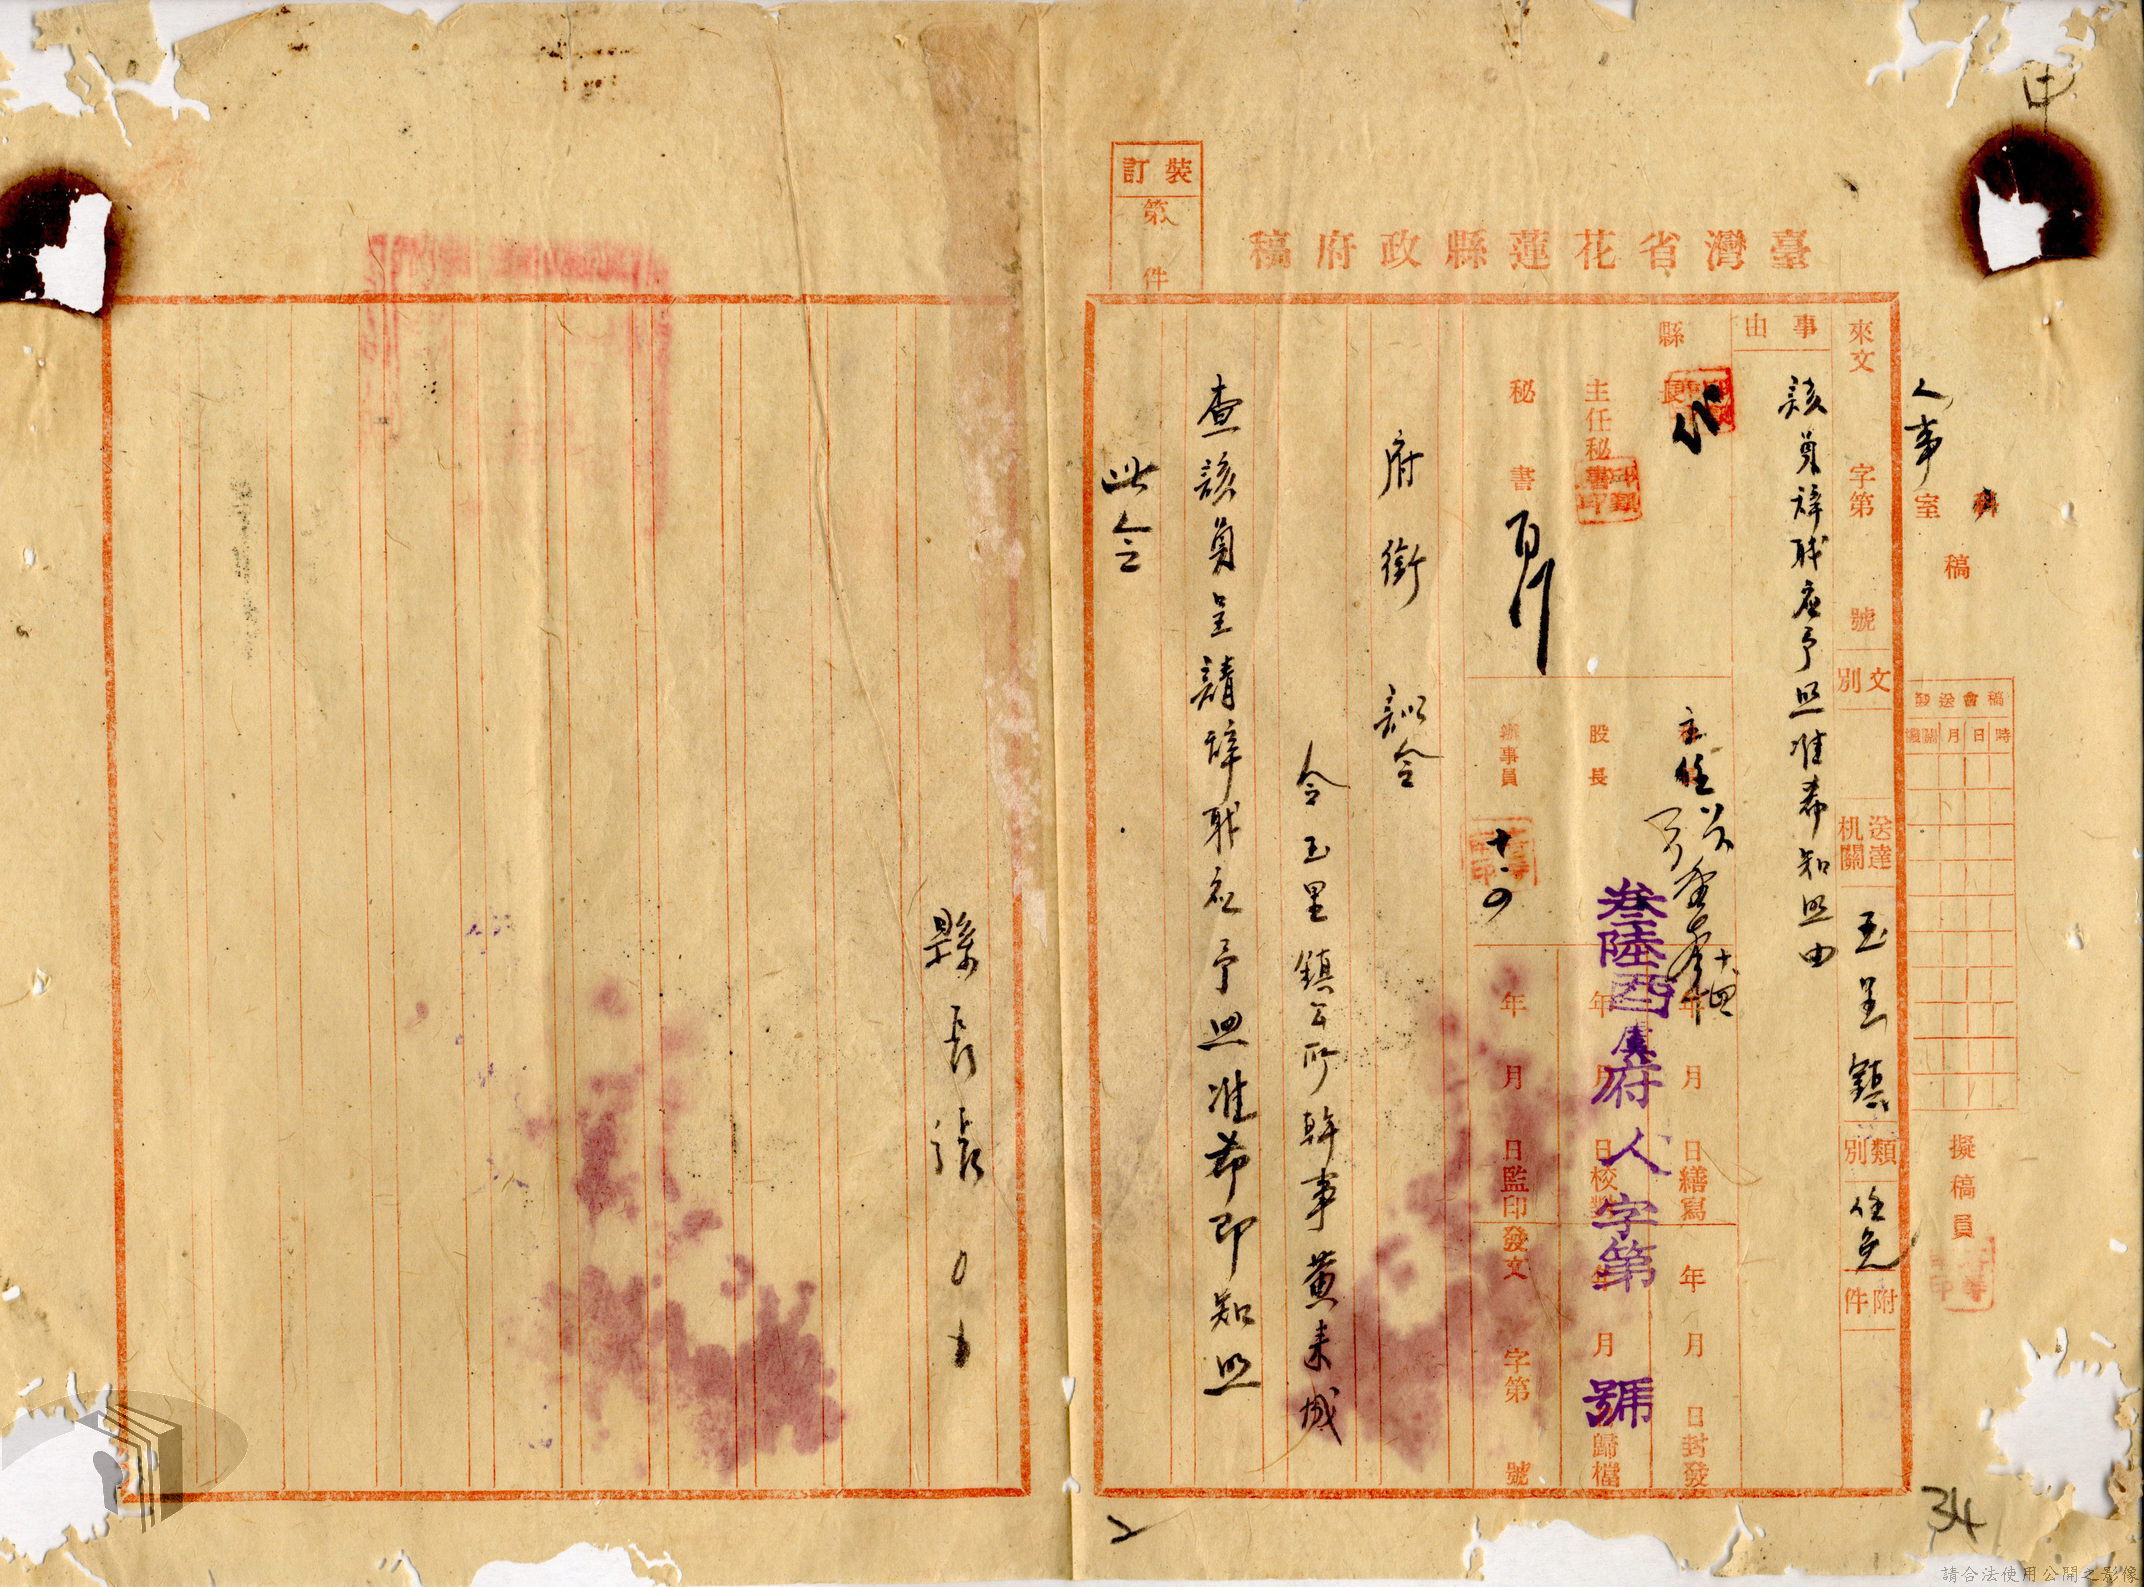 臺灣省花蓮縣政府稿
裝訂
第 件
人事室 稿
稿會送發
時日月
擬稿員
來文 字第 號
文別
送達机關 玉里鎮
類別 任免
附件
事由
該員辭職應予照准希知照由
縣長
主任秘書
秘書
主任
股長
辦事員
十.四
年 月 日繕寫
年 月 日校對
年 月 日監印
年 月 日封發
年 月 日歸檔
發文 字第 號
叁陸酉虞府人字第 號
府銜訓令
令玉里鎮公所幹事黃来城
查該員呈請辭職應予照准希即知照
此令
縣長張
2
34
請合法使用公開之影像